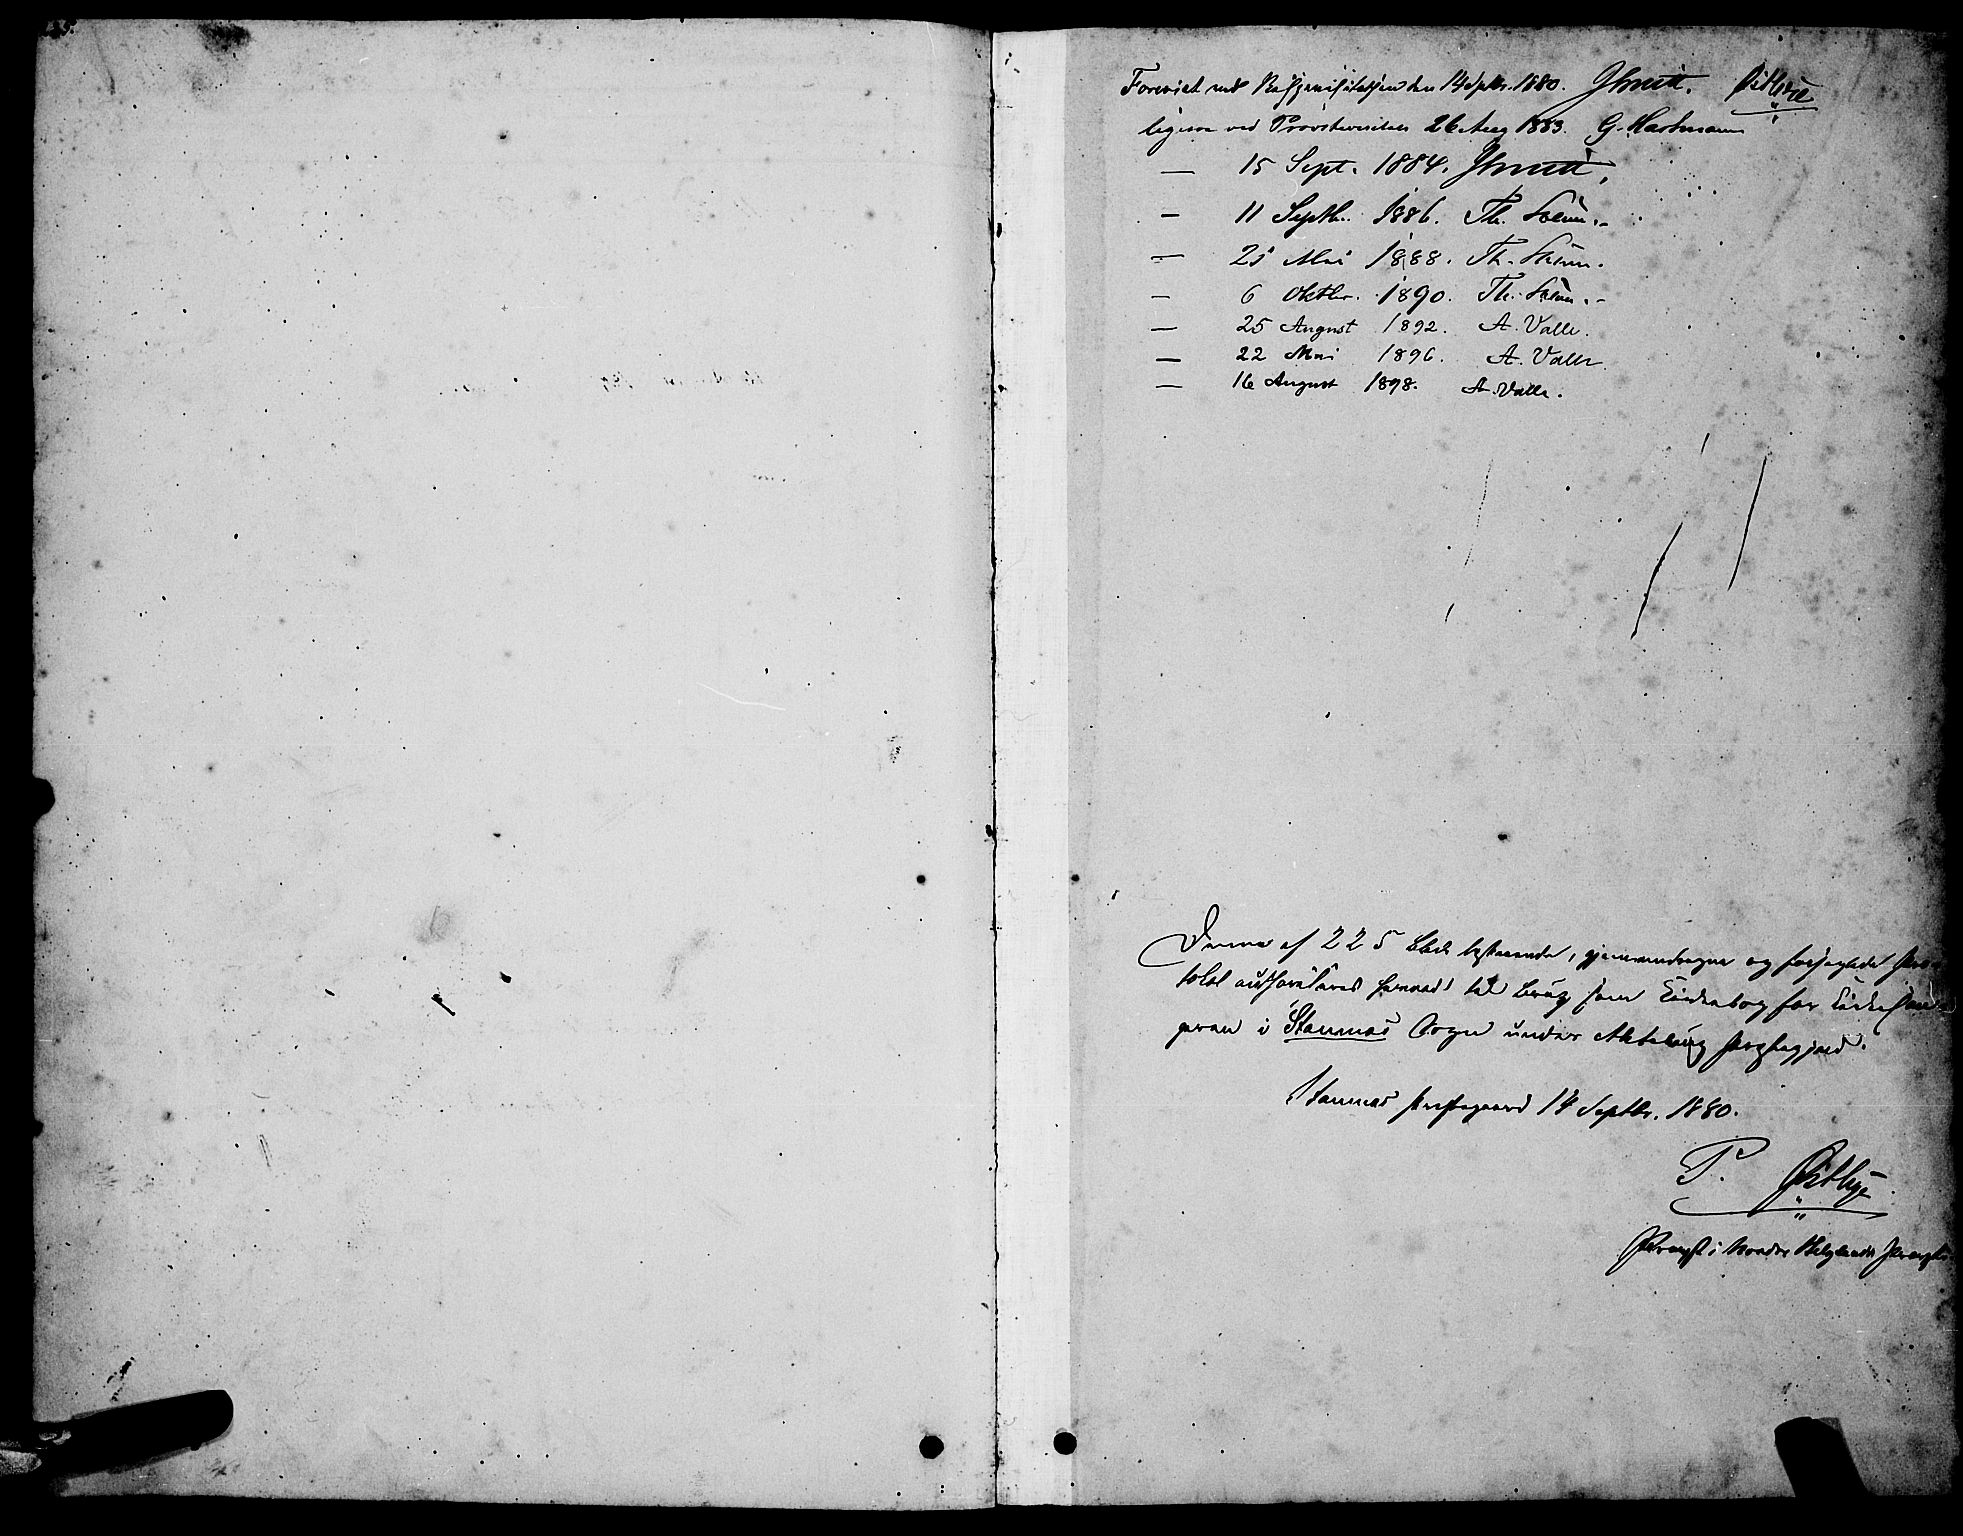 Forevist ved Bispevisitatsen den 14 Septbr. 1880. Østbye
ligesaa ved Provstevisitats 26 Aug 1883. G. Hartmann
— 15 Sept. 1884.
— 11 Septbr. 1886. Th.
— 25 Mai 1888. Th.
— 6 Oktbr. 1890. Th.
— 25 August 1892. A. Valle.
— 22 Mai 1896. A. Valle
— 16 August 1898. A. Valle.
Denne af 225 Blade bestaaende, gjennemdragne og forseglede Pro-
tokol authoriseres herved til Brug som Kirkebog for Kirkesan-
geren i Stamnes Sogn under Alstahaug Præstegjeld.
Stamnes Præstegaard 14 Septbr. 1880.
P. Østbye
Provst i Nordre Helgelands Provsti.